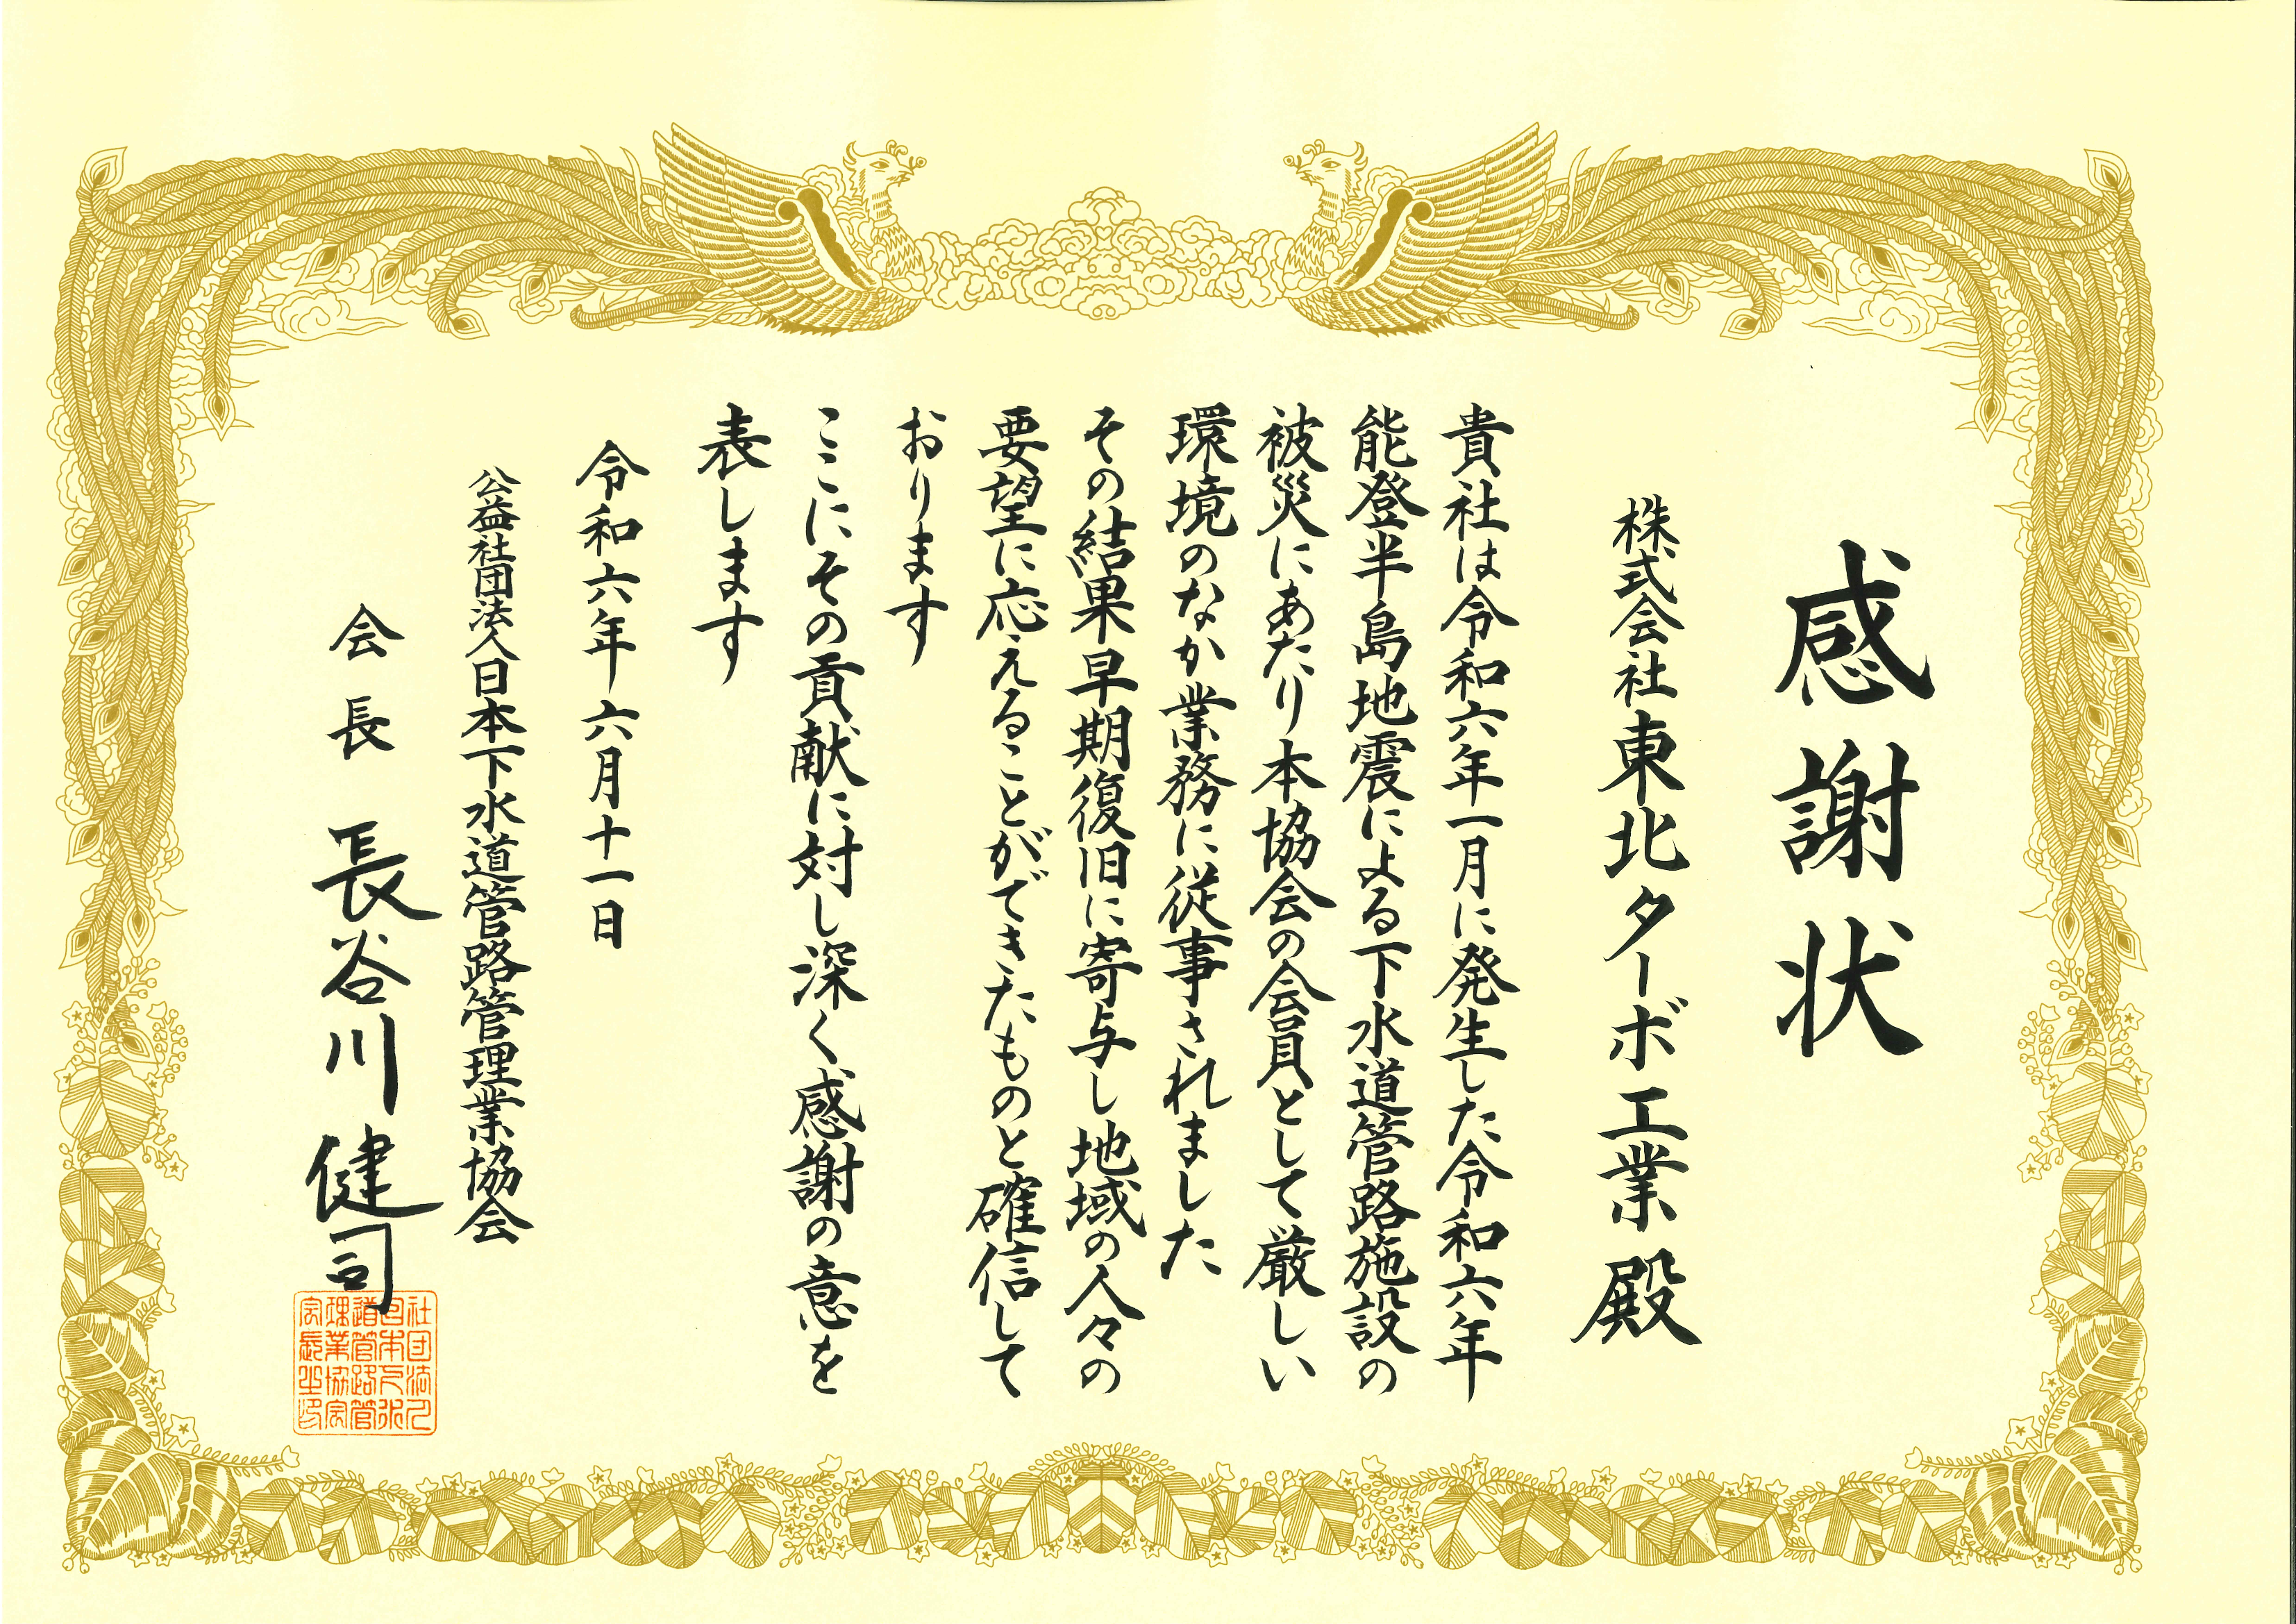 感謝状
株式会社東北ターボ工業 殿
貴社は令和六年一月に発生した令和六年
能登半島地震による下水道管路施設の
被災にあたり本協会の会員として厳しい
環境のなか業務に従事されました
その結果早期復旧に寄与し地域の人々の
要望に応えることができたものと確信して
おります
ここにその貢献に対し深く感謝の意を
表します
令和六年六月十一日
公益社団法人日本下水道管路管理業協会
会長 長谷川健司
社団法人
日本下水
道管路管
理業協会
会長之印